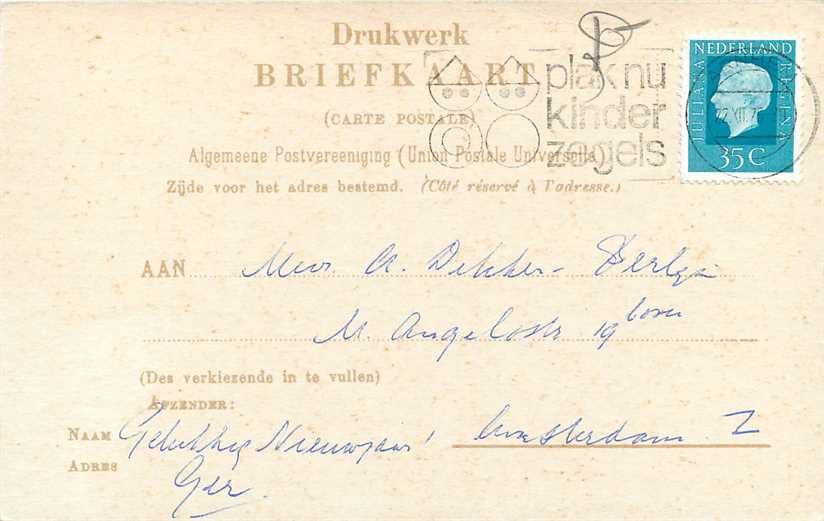 Drukwerk
BRIEFKAART
(CARTE POSTALE)
Algemeene Postvereeniging (Union Postale Universelle)
Zijde voor het adres bestemd. (Côté réservé à l'adresse.)
plak nu
kinder
zegels
NEDERLAND
JULIANA
REGINA
35 C
AAN Mevr. A. Dekker-
M. Angelostr 19 boven
(Des verkiezende in te vullen)
AFZENDER:
NAAM Gelukkig Nieuwjaar! Amsterdam Z
ADRES Ger.